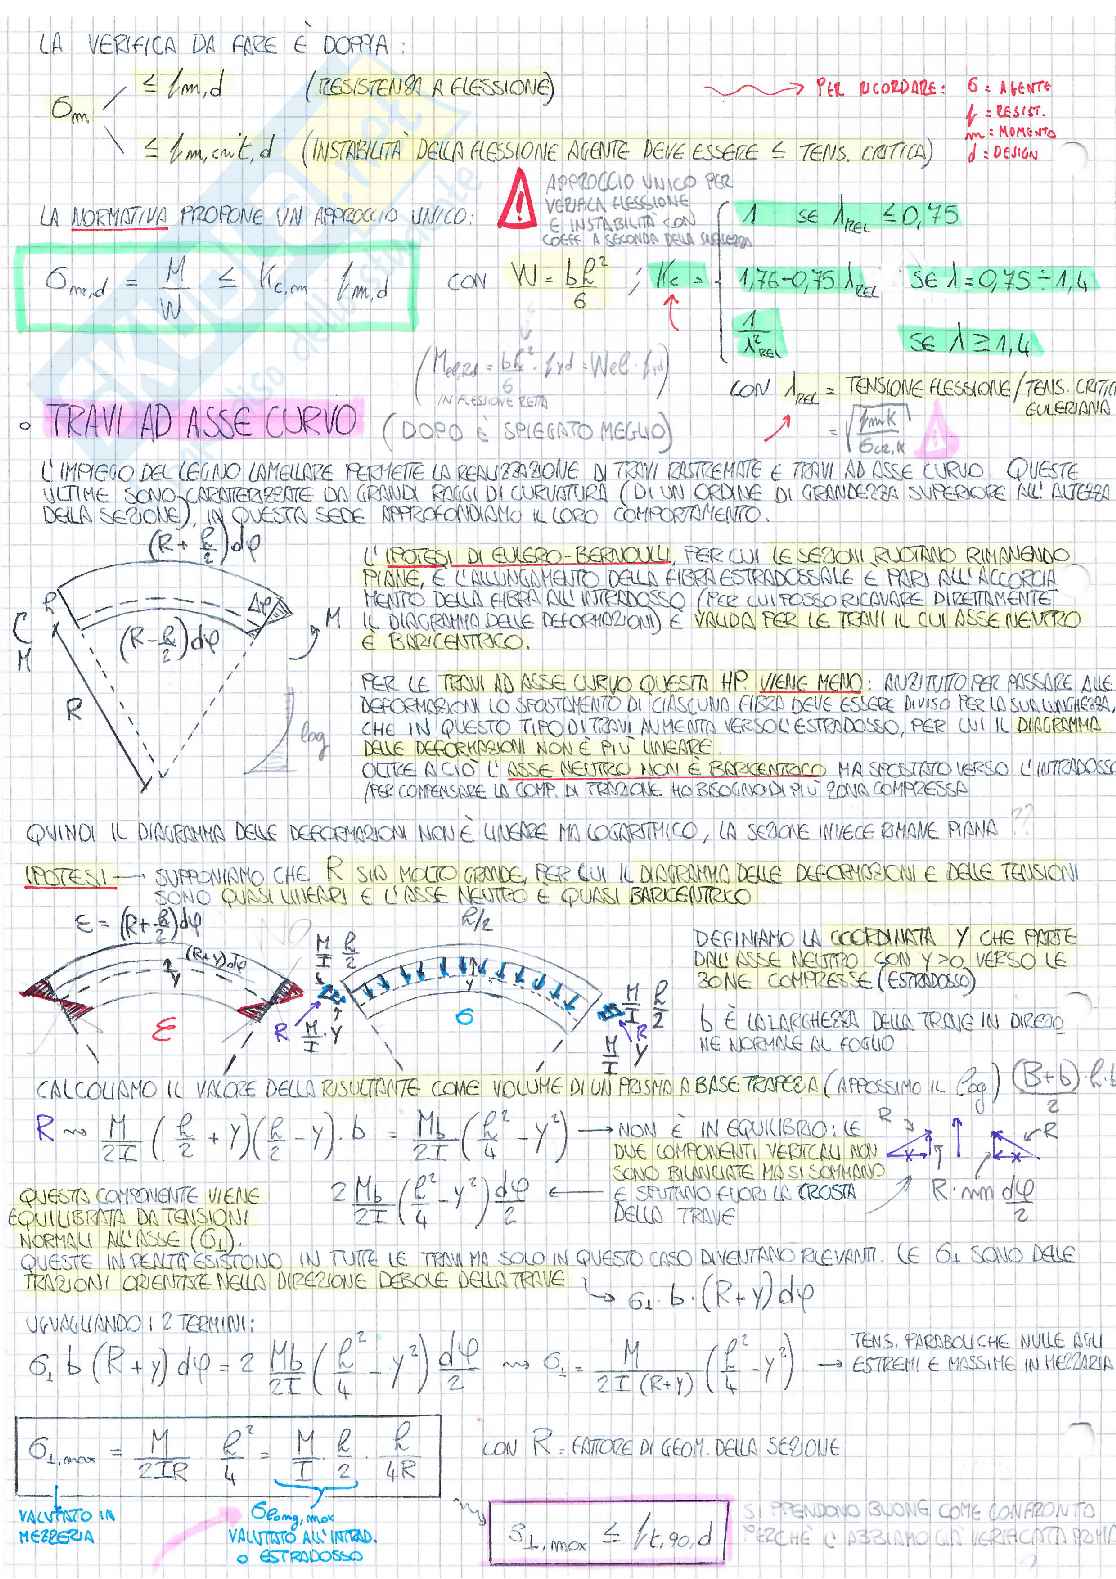 LA VERIFICA DA FARE È DOPPIA:
σm ≤ fm,d (RESISTENZA A FLESSIONE)
≤ fm,crit,d (INSTABILITÀ DELLA FLESSIONE AGENTE DEVE ESSERE ≤ TENS. CRITICA)
PER RICORDARE: σ = AGENTE
f = RESIST.
m = MOMENTO
d = DESIGN
LA NORMATIVA PROPONE UN APPROCCIO UNICO:
APPROCCIO UNICO PER
VERIFICA FLESSIONE
E INSTABILITÀ CON
COEFF. A SECONDA DELLA SNELLEZZA
σm,d = M/W ≤ Kc,m fm,d CON W = bh²/6 ; Kc =
1 SE λREL ≤ 0,75
1,76-0,75 λREL SE λ = 0,75 ÷ 1,4
1/λ²REL SE λ ≥ 1,4
IN FLESSIONE RETTA
CON λREL = TENSIONE FLESSIONE/TENS. CRITICA
EULERIANA
= √fm,k/σcr,k
° TRAVI AD ASSE CURVO (DOPO È SPIEGATO MEGLIO)
L'IMPIEGO DEL LEGNO LAMELLARE PERMETTE LA REALIZZAZIONE DI TRAVI RASTREMATE E TRAVI AD ASSE CURVO. QUESTE
ULTIME SONO CARATTERIZZATE DA GRANDI RAGGI DI CURVATURA (DI UN ORDINE DI GRANDEZZA SUPERIORE ALL'ALTEZZA
DELLA SEZIONE), IN QUESTA SEDE APPROFONDIAMO IL LORO COMPORTAMENTO.
(R + h/2)dφ
h
Δφ
(R-h/2)dφ
M
M
R
log
L'IPOTESI DI EULERO-BERNOULLI, PER CUI LE SEZIONI RUOTANO RIMANENDO
PIANE, E L'ALLUNGAMENTO DELLA FIBRA ESTRADOSSALE È PARI ALL'ACCORCIA
MENTO DELLA FIBRA ALL'INTRADOSSO (PER CUI POSSO RICAVARE DIRETTAMENTE
IL DIAGRAMMA DELLE DEFORMAZIONI) È VALIDA PER LE TRAVI IL CUI ASSE NEUTRO
È BARICENTRICO.
PER LE TRAVI AD ASSE CURVO QUESTA HP VIENE MENO: ANZITUTTO PER PASSARE ALLE
DEFORMAZIONI LO SPOSTAMENTO DI CIASCUNA FIBRA DEVE ESSERE DIVISO PER LA SUA LUNGHEZZA,
CHE IN QUESTO TIPO DI TRAVI AUMENTA VERSO L'ESTRADOSSO, PER CUI IL DIAGRAMMA
DELLE DEFORMAZIONI NON È PIÙ LINEARE.
OLTRE A CIÒ L'ASSE NEUTRO NON È BARICENTRICO MA SPOSTATO VERSO L'INTRADOSSO
(PER COMPENSARE LA COMP. DI TRAZIONE HO BISOGNO DI PIÙ ZONA COMPRESSA
QUINDI IL DIAGRAMMA DELLE DEFORMAZIONI NON È LINEARE MA LOGARITMICO, LA SEZIONE INVECE RIMANE PIANA ??
IPOTESI → SUPPONIAMO CHE R SIA MOLTO GRANDE, PER CUI IL DIAGRAMMA DELLE DEFORMAZIONI E DELLE TENSIONI
SONO QUASI LINEARI E L'ASSE NEUTRO È QUASI BARICENTRICO
ε = (R+h/2)dφ
(R+y)dφ
y
ε
M/I h/2
h/2
R
M/I · y
y
σ
M/I h/2
R
M/I y
DEFINIAMO LA COORDINATA Y CHE PARTE
DALL'ASSE NEUTRO CON Y>0 VERSO LE
ZONE COMPRESSE (ESTRADOSSO)
b È LA LARGHEZZA DELLA TRAVE IN DIREZIO
NE NORMALE AL FOGLIO
CALCOLIAMO IL VALORE DELLA RISULTANTE COME VOLUME DI UN PRISMA A BASE TRAPEZIA (APPOSSIMO IL log) (B+b)·h·b/2
R ⇝ M/2I (h/2 + y)(h/2 - y)·b = Mb/2I (h²/4 - y²) → NON È IN EQUILIBRIO: LE
DUE COMPONENTI VERTICALI NON
SONO BILANCIATE MA SI SOMMANO
E SPUTANO FUORI LA CROSTA
DELLA TRAVE
R
R
R·sin dφ/2
2 Mb/2I (h²/4 - y²) dφ/2 ←
QUESTA COMPONENTE VIENE
EQUILIBRATA DA TENSIONI
NORMALI ALL'ASSE (σ⊥).
QUESTE IN REALTÀ ESISTONO IN TUTTE LE TRAVI MA SOLO IN QUESTO CASO DIVENTANO RILEVANTI. LE σ⊥ SONO DELLE
TRAZIONI ORIENTATE NELLA DIREZIONE DEBOLE DELLA TRAVE
→ σ⊥·b·(R+y)dφ
UGUAGLIANDO I 2 TERMINI:
σ⊥ b (R+y) dφ = 2 Mb/2I (h²/4 - y²) dφ/2 ⇝ σ⊥ = M/2I(R+y) (h²/4 - y²) → TENS. PARABOLICHE NULLE AGLI
ESTREMI E MASSIME IN MEZZARIA
σ⊥,max = M/2IR h²/4 = M/I · h/2 · h/4R CON R = FATTORE DI GEOM. DELLA SEZIONE
VALUTATO IN
MEZZERIA
σlong,max
VALUTATO ALL'INTRAD.
O ESTRADOSSO
σ⊥,max ≤ ft,90,d
SI PRENDONO BUONE COME CONFRONTO
PERCHÉ L'ABBIAMO GIÀ VERIFICATA PRIMA